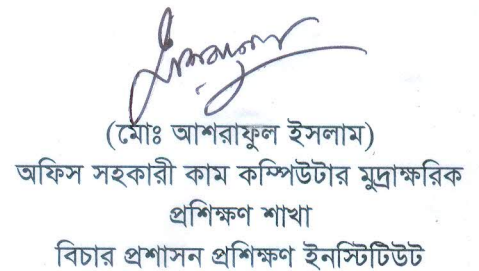 (মোঃ আশরাফুল ইসলাম)
অফিস সহকারী কাম কম্পিউটার মুদ্রাক্ষরিক
প্রশিক্ষণ শাখা
বিচার প্রশাসন প্রশিক্ষণ ইনস্টিটিউট